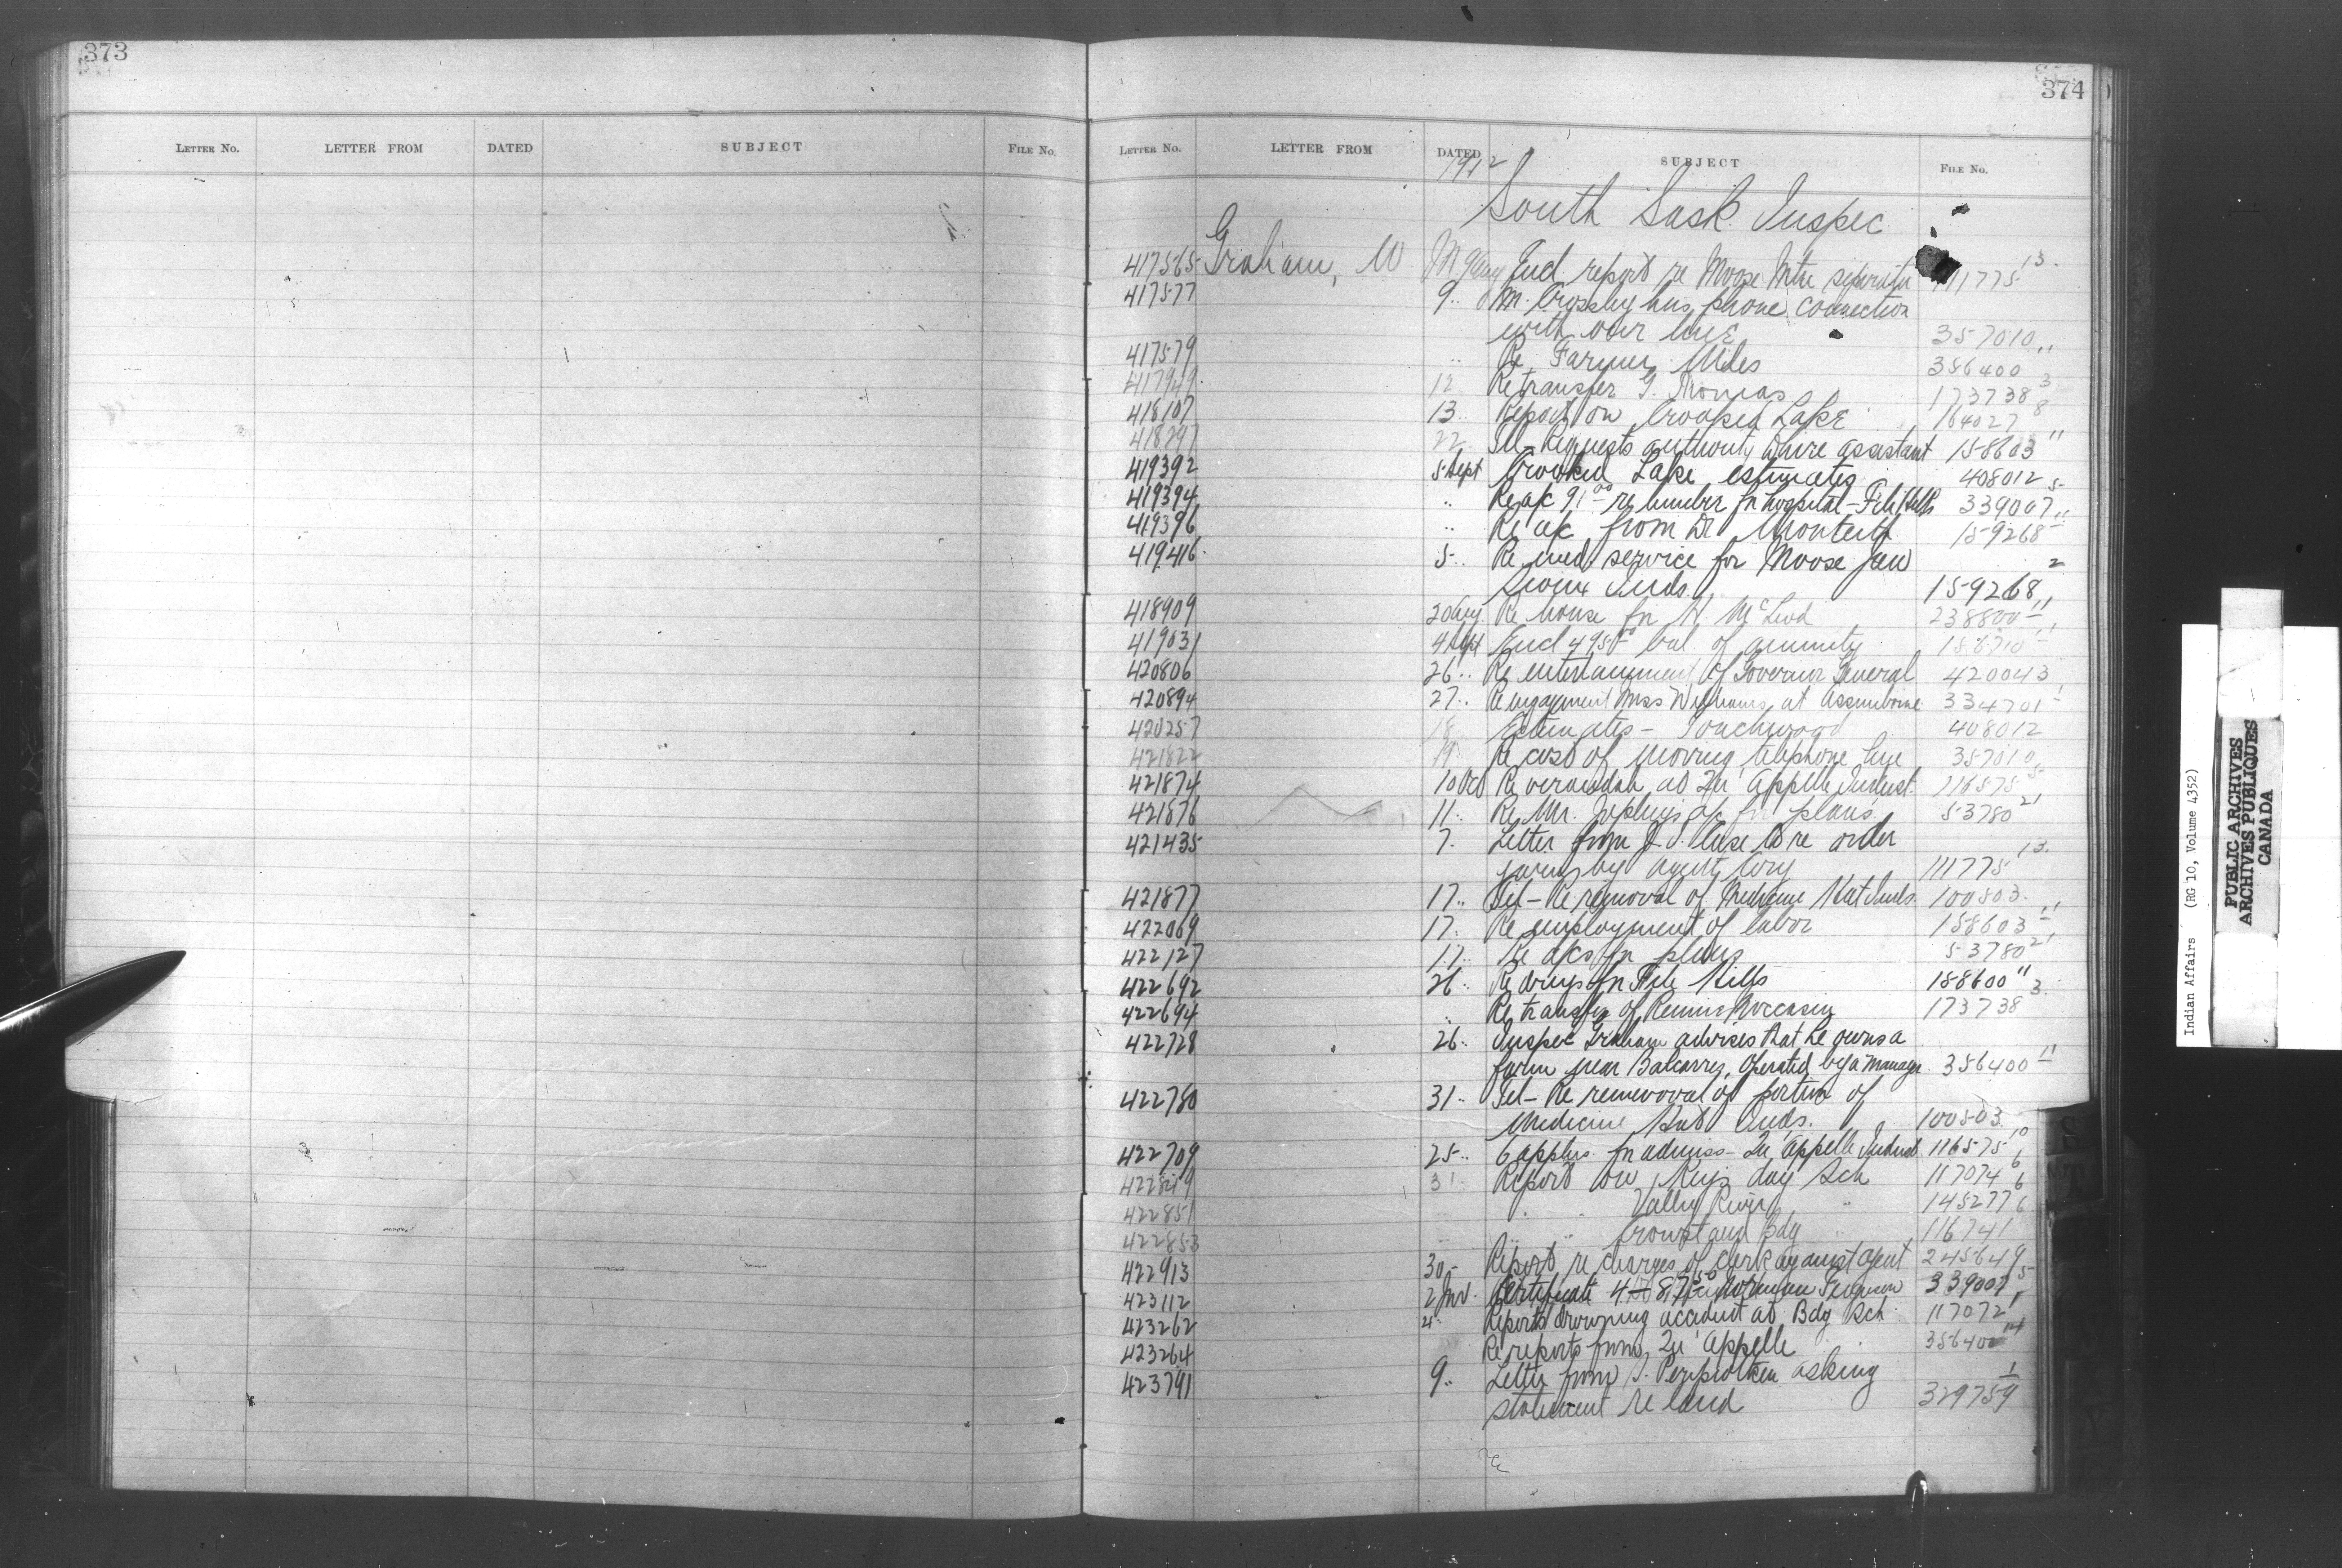 373
LETTER NO. LETTER FROM DATED SUBJECT FILE NO.
374
LETTER NO. LETTER FROM DATED SUBJECT FILE NO.
1912
South Sask. Inspec
417565 Graham, W M Encl report re Moose Mtn 111775 13
417577 9 " Crossley phone connection
with our line 357010
417579 " Re Farmer Miles 386400 11
417949 12 Re transfer G. Thomas 173738 3
418107 13 " Report on Crooked Lake 164027 8
418297 22 Tel - Requests authority hire assistant 158603 11
419392 5 Sept Crooked Lake estimates 408012
419394 " Re a/c 91.00 re lumber for hospital - File Hills 339007 5
419396 " Re a/c from Dr Monteith 159268
419416 5 " Re med. service for Moose Jaw
Sioux Inds. 159268 2
418909 20 Aug Re house for H. McLeod 238800
419031 4 Sept Encl bal. of annuity
420806 26 " Re entertainment of Governor General 420043
420894 27 " Re engagement Miss Williams at Assiniboine 334701 1
420257 18 Estimates - Touchwood 408012
421822 19 Re cost of moving telephone line 357010
421874 10 Oct Re verandah at Qu'Appelle Indust. 116575 5
421876 11 " Re Mr. a/c for plans 53780 21
421435 7 " Letter from J. I. Case Co re order
given by agent Cory 111775 13
421877 17 " Tel - Re removal of Medicine Hat Inds. 100503
422069 17 " Re employment of labor 158603 11
422127 17 " Re a/cs for plans 53780 21
422692 26 " Re drugs for File Hills 158600 11
422694 " Re transfer of Moccasin 173738 3
422728 26 " Inspec Graham advises that he owns a
farm near Balcarres, operated by a manager 386400 11
422780 31 " Tel - Re removal of portion of
Medicine Hat Inds. 100503
422709 25 " 6 applns. for admiss - Qu'Appelle Indust 116575 10
422849 31 Report on Keys day Sch 117074 6
422851 " " Valley River " 145277 6
422853 " " Crowstand Bdg 116741 6
422913 30 " Report re charges of clerk against agent 245649
423112 2 Nov. Certificate Ferguson 339007 5
423262 4 " Reports drowning accident at Bdg Sch 117072 1
423264 Re reports from Qu'Appelle 14
423791 9 " Letter from asking
statement re land 329759 1
Re
Indian Affairs (RG 10, Volume 4352)
PUBLIC ARCHIVES
ARCHIVES PUBLIQUES
CANADA